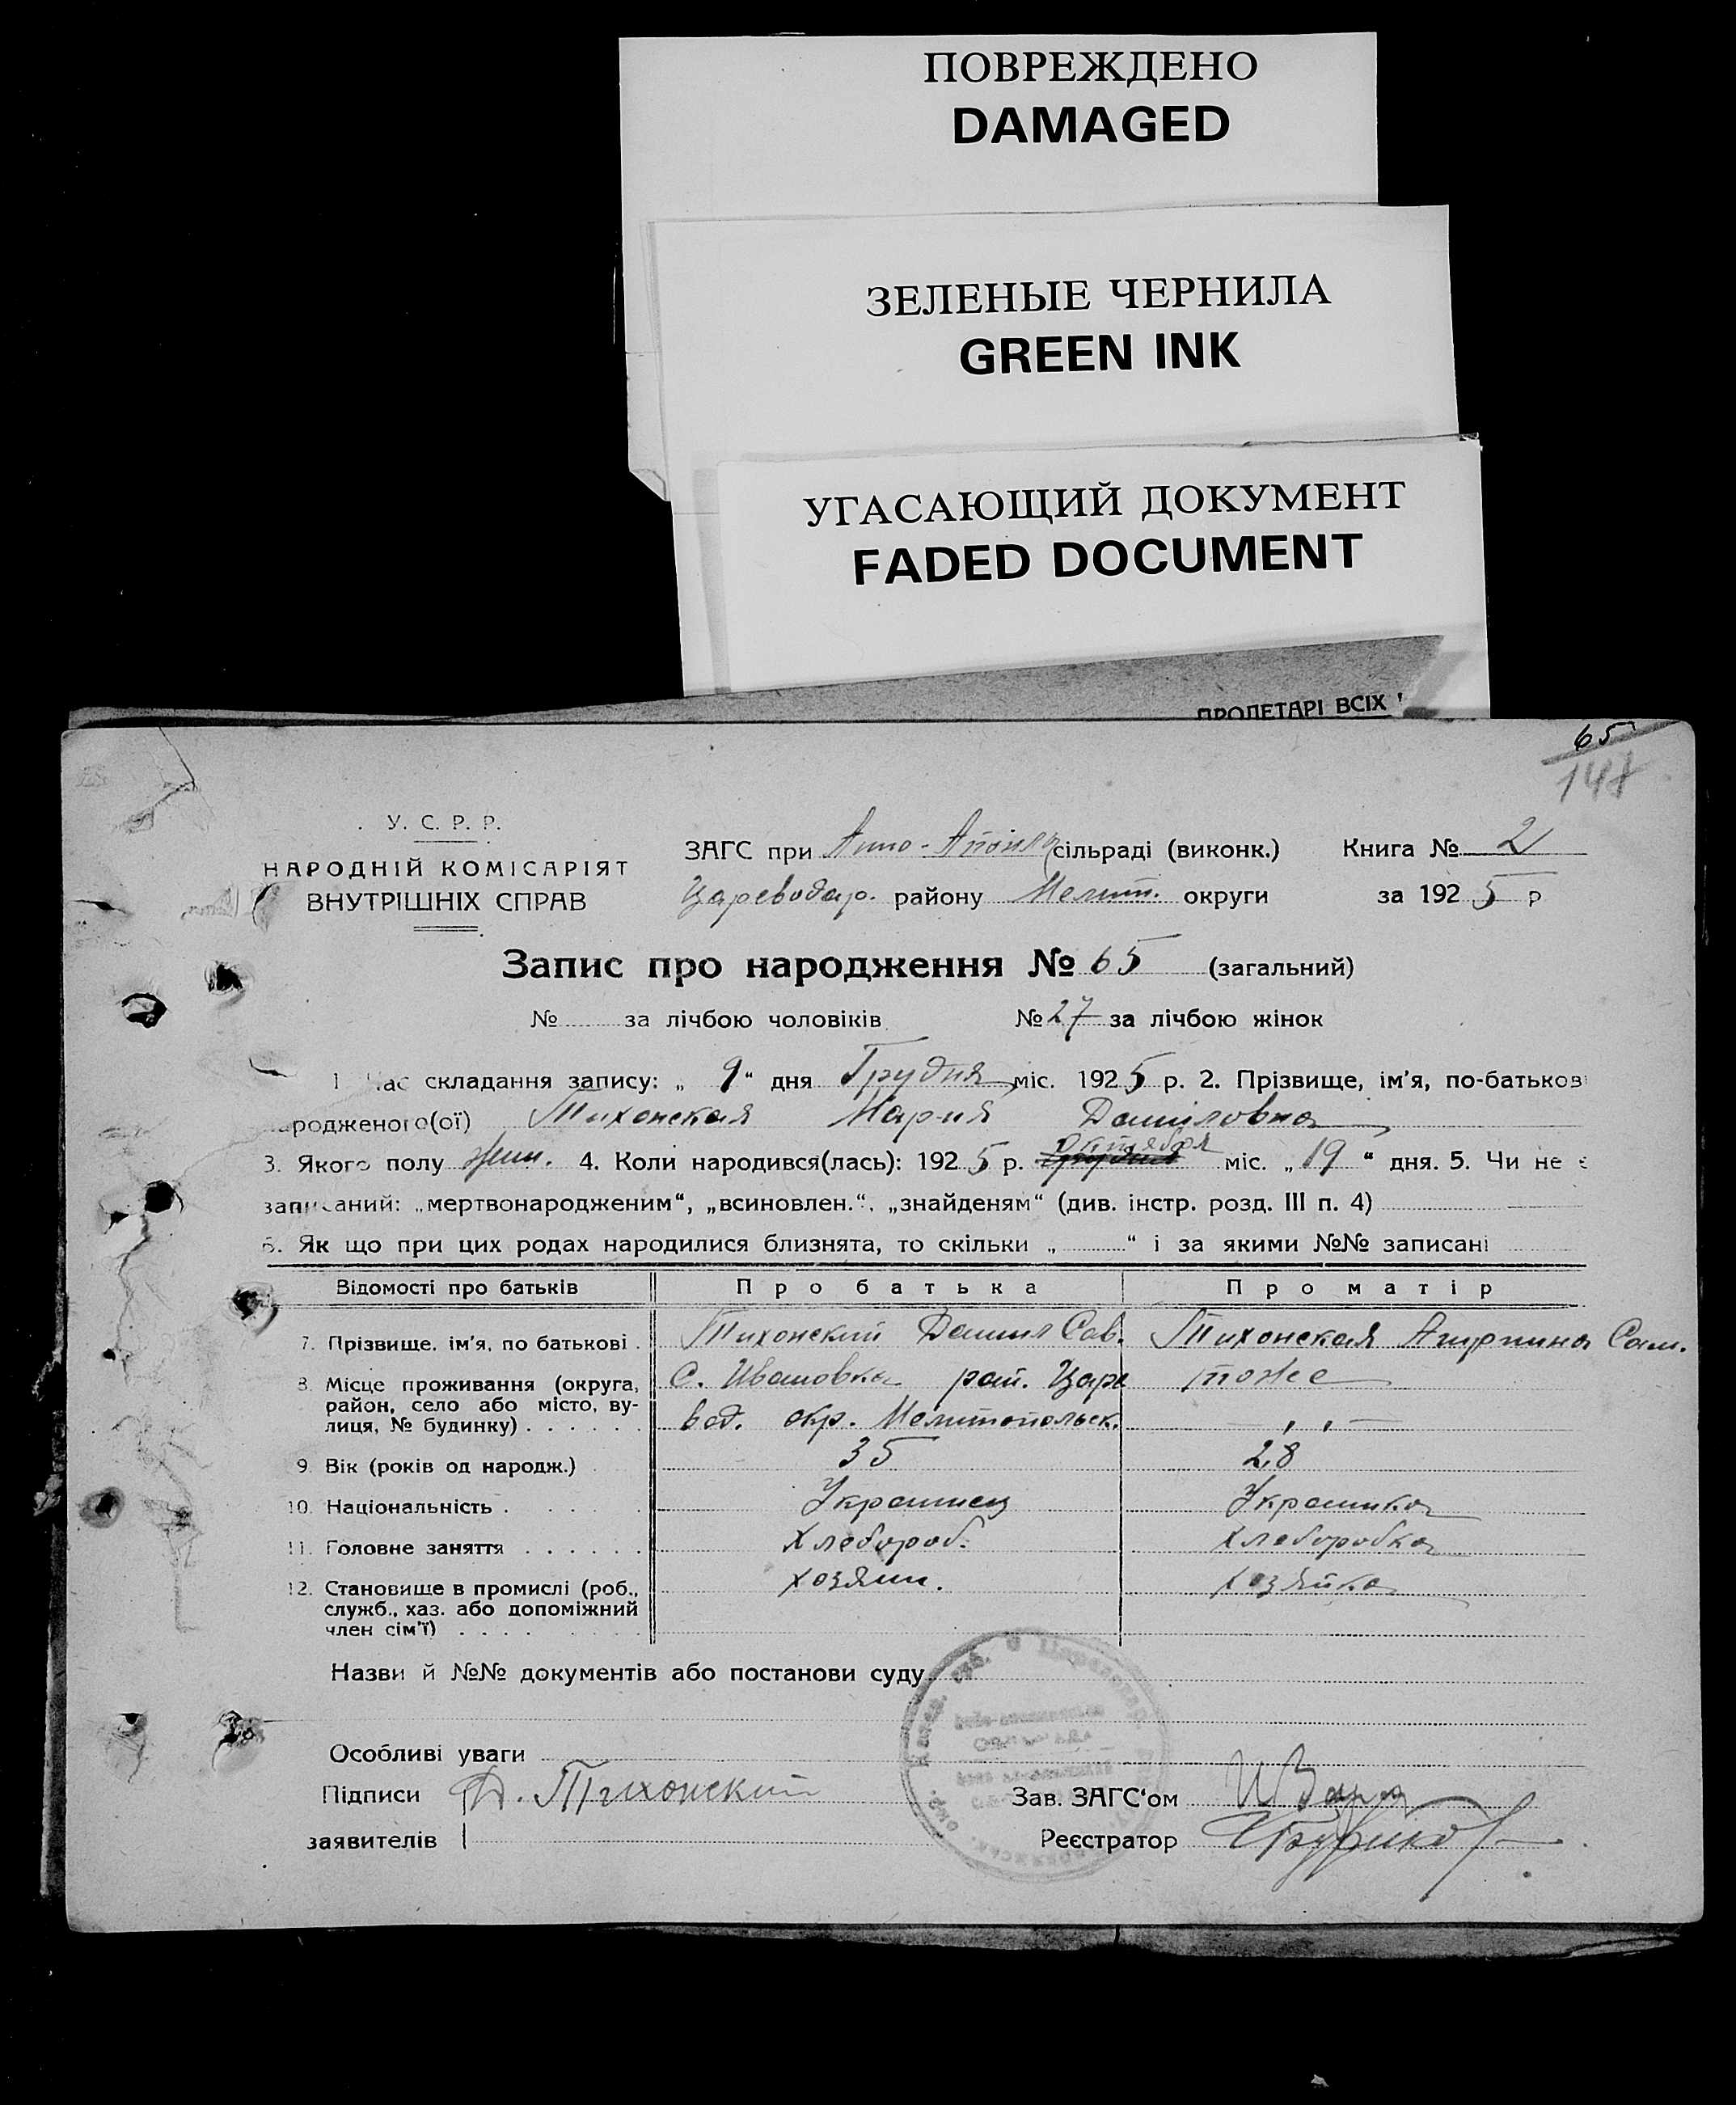 ПОВРЕЖДЕНО
DAMAGED
ЗЕЛЕНЫЕ ЧЕРНИЛА
GREEN INK
УГАСАЮЩИЙ ДОКУМЕНТ
FADED DOCUMENT
ПРОЛЕТАРІ ВСІХ
65
У. С. Р. Р.
НАРОДНІЙ КОМІСАРІЯТ
ВНУТРІШНІХ СПРАВ
ЗАГС при Анно- сільраді (виконк.) Книга № 2
Цареводар. району Мелит. округи за 1925 р
Запис про народження № 65 (загальний)
№ за лічбою чоловіків № 27 за лічбою жінок
1 час складання запису: „ 9 “ дня Грудня міс. 1925 р. 2. Прізвище, ім’я, по-батькові
народженого(ої) Тихонская Мария Даниловна
3. Якого полу жен. 4. Коли народився(лась): 1925 р. Октября міс. „ 19 “ дня. 5. Чи не є
записаний: „мертвонародженим“, „всиновлен.“, „знайденям“ (див. інстр. розд. III п. 4)
6. Як що при цих родах народилися близнята, то скільки „ “ і за якими №№ записані
Відомості про батьків Про батька Про матір
7. Прізвище, ім’я, по батькові . Тихонский Данил Сав. Тихонская Агирпина Сам.
8. Місце проживання (округа, район, село або місто, вулиця, № будинку) . . . . . . С. Ивановка рай. Царе вод. окр. Мелитопольск. тоже — „ —
9. Вік (років од народж.) 35 28
10. Національність . . . . . Украинец Украинка
11. Головне заняття . . . . . . Хлебороб. Хлеборобка
12. Становище в промислі (роб., служб., хаз. або допоміжний член сім’ї) . . . . . . . . хозяин. хозяйка
Назви й №№ документів або постанови суду
Особливі уваги
Підписи Д. Тихонский Зав. ЗАГС‘ом
заявителів Реєстратор